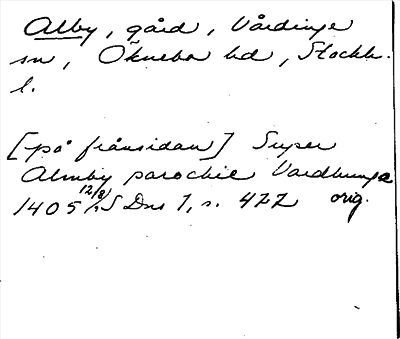 Alby, gård, Vårdinge
sn, Öknebo hd, Stockh.
l.
[på frånsidan] Super
Almby parochie Vardhunga
1405 12/8 SDns 1, s. 477 orig.